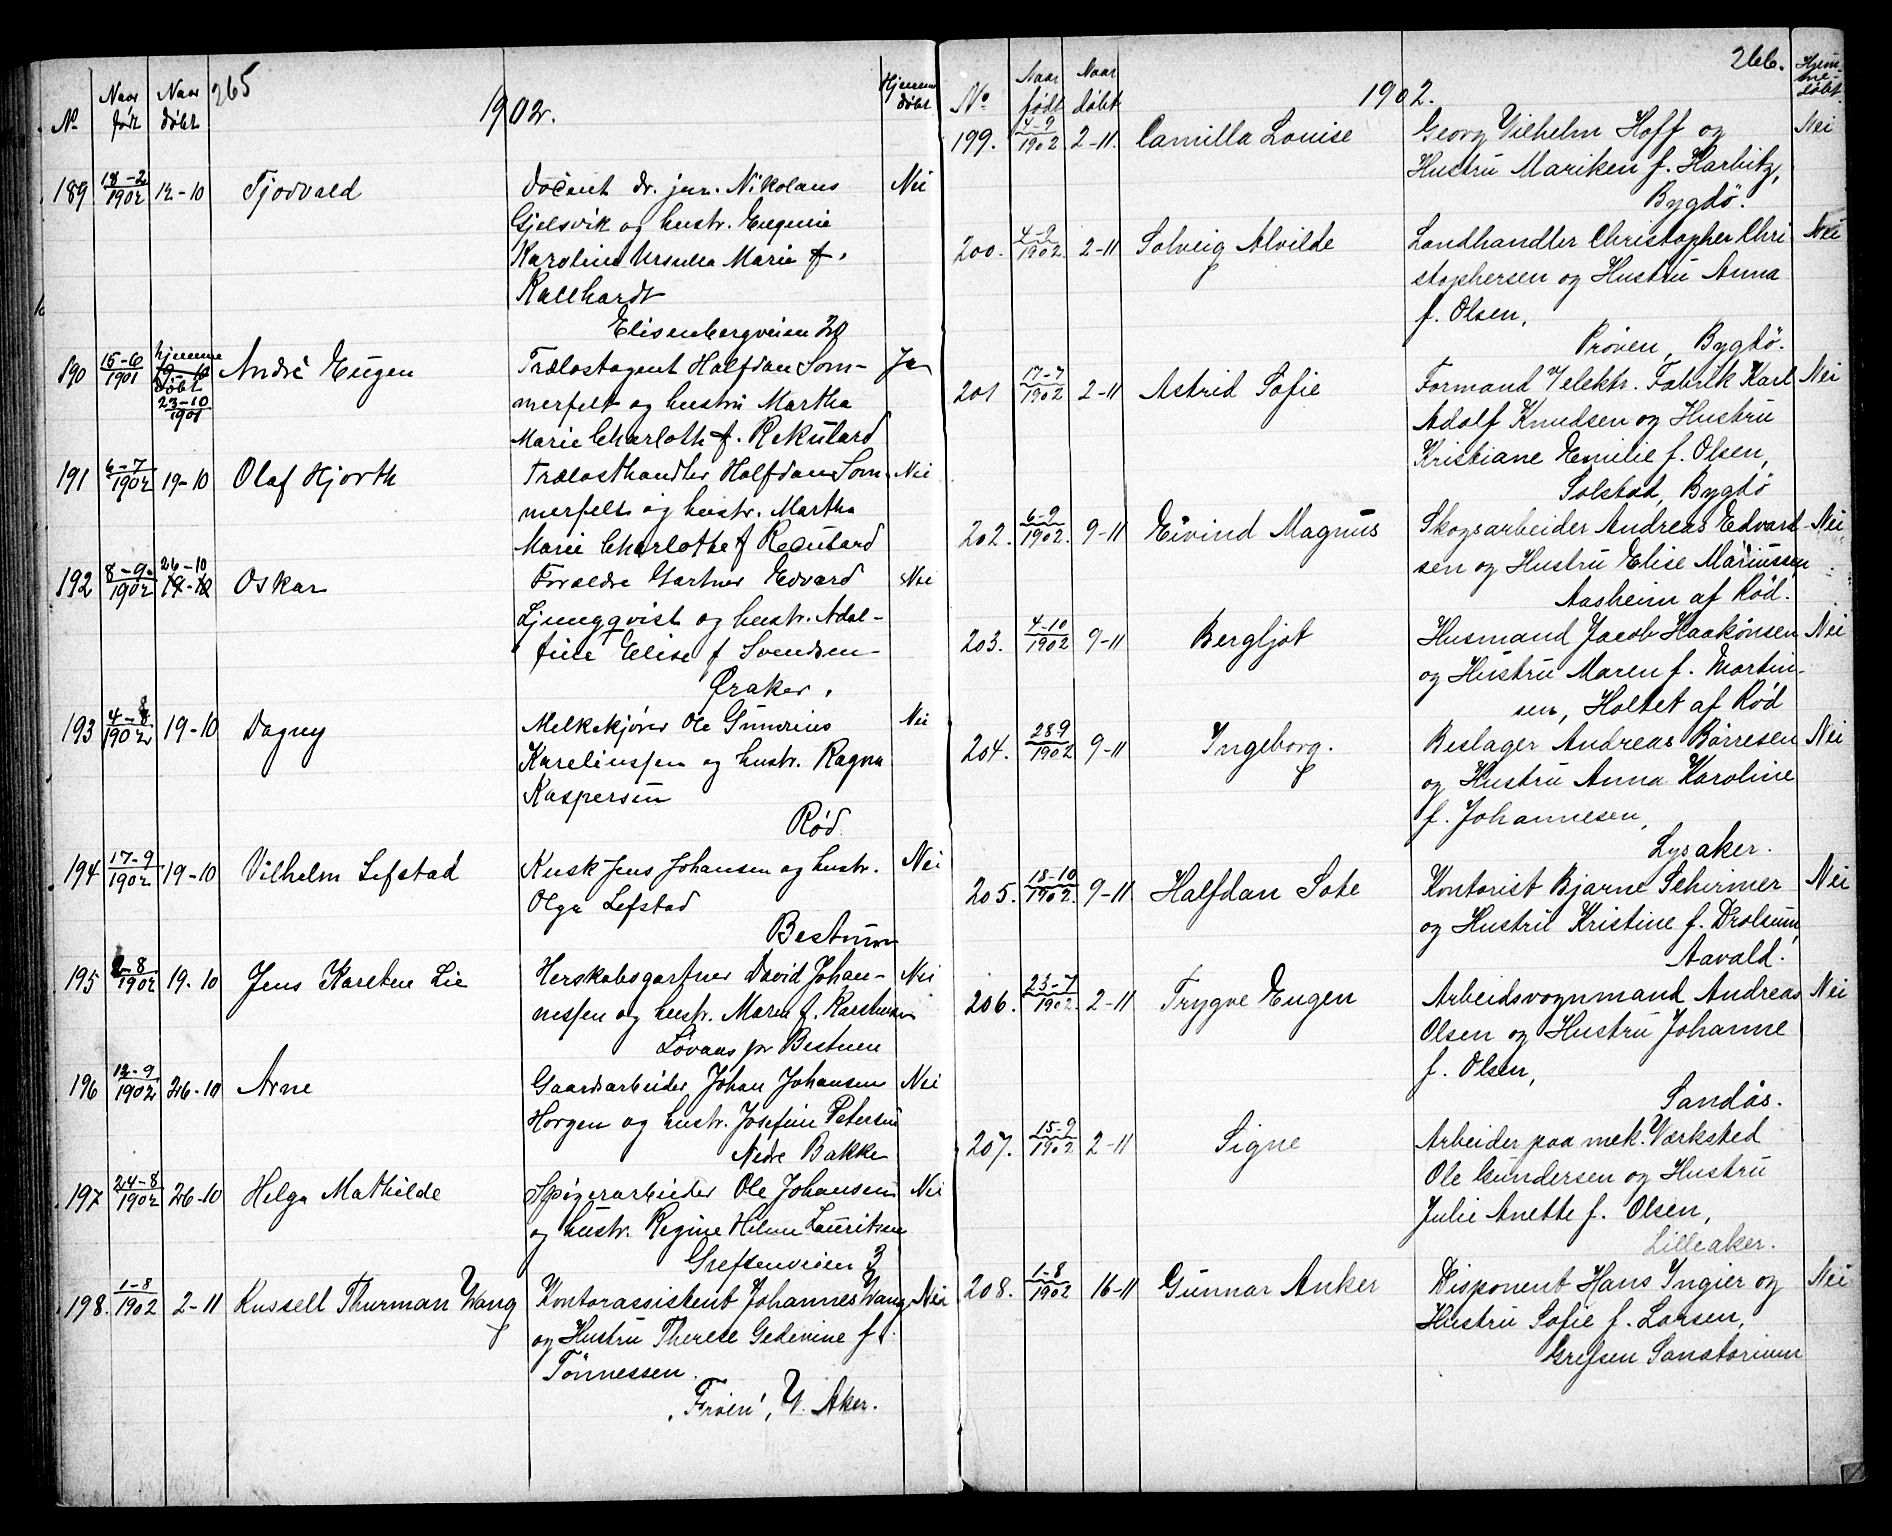 265
1902.
No Naar født Naar døbt Hjemme døbt
189 18-2 1902 12-10 Tjodvald Docent dr. jur. Nikolaus Nei
Gjelsvik og hustr. Eugenie
Karoline Ursula Marie f.
Kallhardt
Elisenbergveien 20
190 15-6 1901 hjemme døbt 23-10 1901 André Eugen Trælastagent Halfdan Som- Ja
merfelt og hustru Martha
Marie Charlothe f. Rekustad
191 6-7 1902 19-10 Olaf Hjorth Trælasthandler Halfdan Som- Nei
merfelt og hustr. Martha
Marie Charlothe f Recustard
192 8-9 1902 26-10 19-10 Oskar Forældre Gartner Edvard Nei
Ljungqvist og hustr. Adol-
fine Elise f Svendsen
Øraker.
193 4-8 1902 19-10 Dagny Melkekjører Ole Gunerius Nei
Karelinssen og hustr. Ragna
Kaspersen
Rød
194 17-9 1902 19-10 Vilhelm Lefstad Kusk Jens Johansen og hustr. Nei
Olga Lefstad
Bestum
195 2-8 1902 19-10 Jens Karsten Lie Herskabsgartner David Johan- Nei
nessen og hustr. Maren f. Karstensen
Løvaas pr Bestum
196 12-9 1902 26-10 Arne Gaardsarbeider Johan Johansen Nei
Horgen og hustr. Josefine Petersen
Nedre Bakke
197 24-8 1902 26-10 Helga Mathilde Spigerarbeider Ole Johansen Nei
og hustr. Regine Helene Lauritsen
Grefsenveien 3
198. 1-8 1902 2-11 Russell Thurman Wang Kontorassistent Johannes Wang Nei
og Hustru Therese Gedevine f.
Tönnessen.
"Fröen", V. Aker.
266.
1902.
No Naar født Naar døbt Hjemmedøbt
199. 4-9 1902 2-11. Camilla Louise Georg Vilhelm Hoff og Nei
Hustru Mariken f. Harbitz,
Bygdö.
200. 4-9 1902 2-11 Solveig Alvilde Landhandler Christopher Chri Nei
stophersen og Hustru Anna
f. Olsen,
Pröven, Bygdö.
201 17-7 1902 2-11 Astrid Sofie Formand v/elektr. Fabrik Karl Nei
Adolf Knudsen og Hustru
Kristiane Emilie f. Olsen,
Solstad, Bygdö
202. 6-9 1902. 9-11 Eivind Magnus Skogsarbeider Andreas Edvard- Nei
sen og Hustru Elise Mariussen
Aasheim af Röd.
203. 4-10 1902 9-11 Bergljot Husmand Jacob Haakonsen Nei
og Hustru Maren f. Martin-
sen, Holtet af Röd
204. 28-9 1902 9-11 Ingeborg. Beslager Andreas Börresen Nei
og Hustru Anna Karoline
f. Johannesen,
Lysaker.
205. 18-10 1902. 9-11 Halfdan Sote Kontorist Bjarne Schirmer Nei
og Hustru Kristine f. Drolsum,
Aavald.
206. 23-7 1902. 2-11 Trygve Eugen Arbeidsvognmand Andreas Nei
Olsen og Hustru Johanne
f. Olsen,
Sandaas.
207. 15-9 1902 2-11 Signe Arbeider paa mek. Værksted
Ole Gundersen og Hustru
Julie Anette f. Olsen,
Lilleaker.
208. 1-8 1902 16-11 Gunnar Anker Disponent Hans Ingier og Nei
Hustru Sofie f. Larsen,
Grefsen Sanatorium